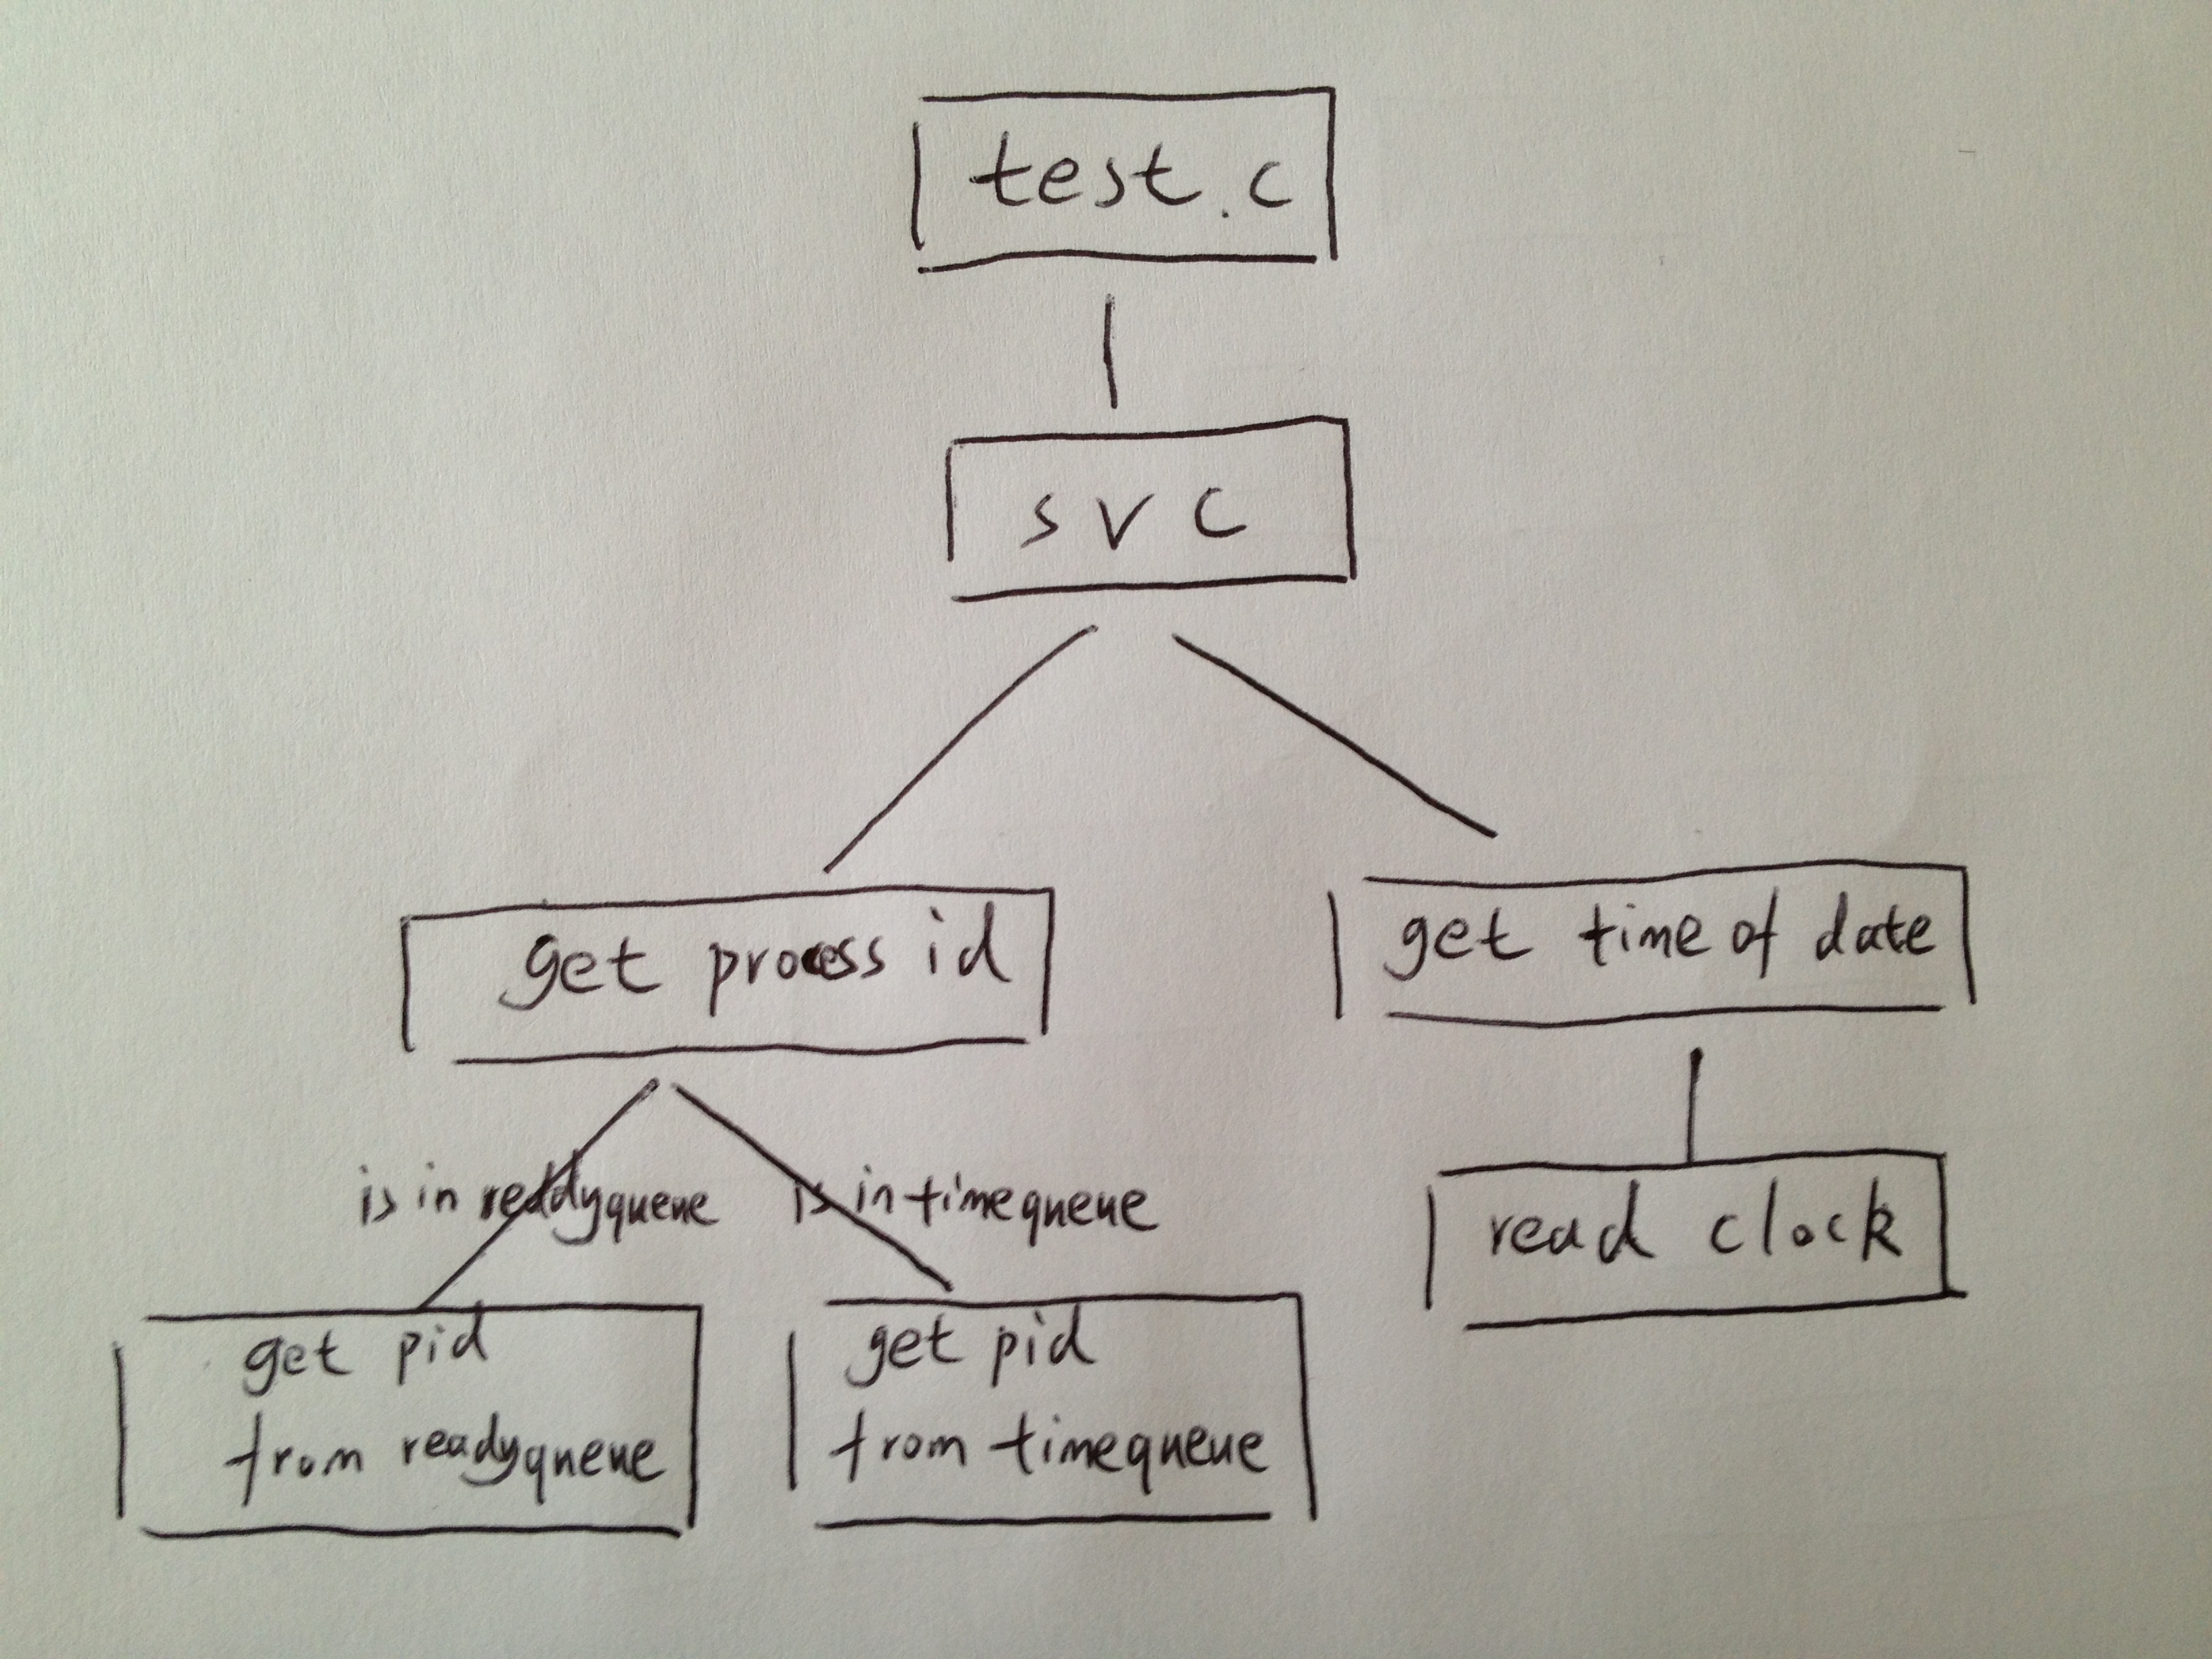 test.c
svc
get process id
get time of date
is in readyqueue
is in timequeue
read clock
get pid
from readyqueue
get pid
from timequeue